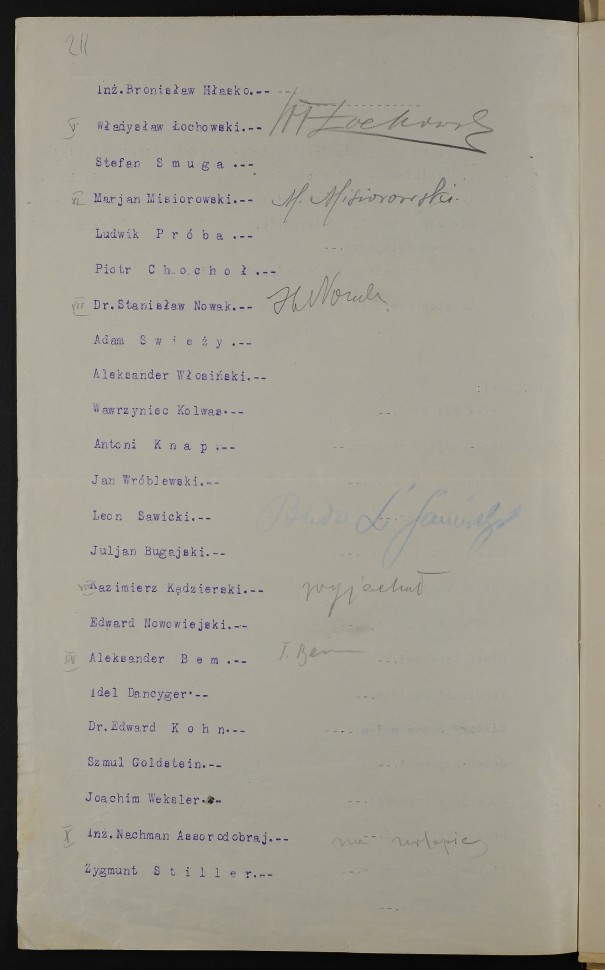 211
Inż.Bronisław Hłasko.-- --
V Władysław Łochowski.-- Łochowski
Stefan S m u g a .--
VI Marjan Misiorowski.-- M. Misiorowski.
Ludwik P r ó b a .--
Piotr C h o c h o ł .--
VII Dr.Stanisław Nowak.-- Nowak
Adam S w i e ż y .--
Aleksander Włosiński.--
Wawrzyniec Kolwas.--
Antoni K n a p .--
Jan Wróblewski.--
Leon Sawicki.--
Juljan Bugajski.--
Kazimierz Kędzierski.-- wyjechał
Edward Nowowiejski.--
Aleksander B e m .-- Bem
Idel Dancyger.--
Dr.Edward K o h n.--
Szmul Goldstein.--
Joachim Weksler.--
X Inż.Nachman Assorodobraj.-- nie
Zygmunt S t i l l e r.--